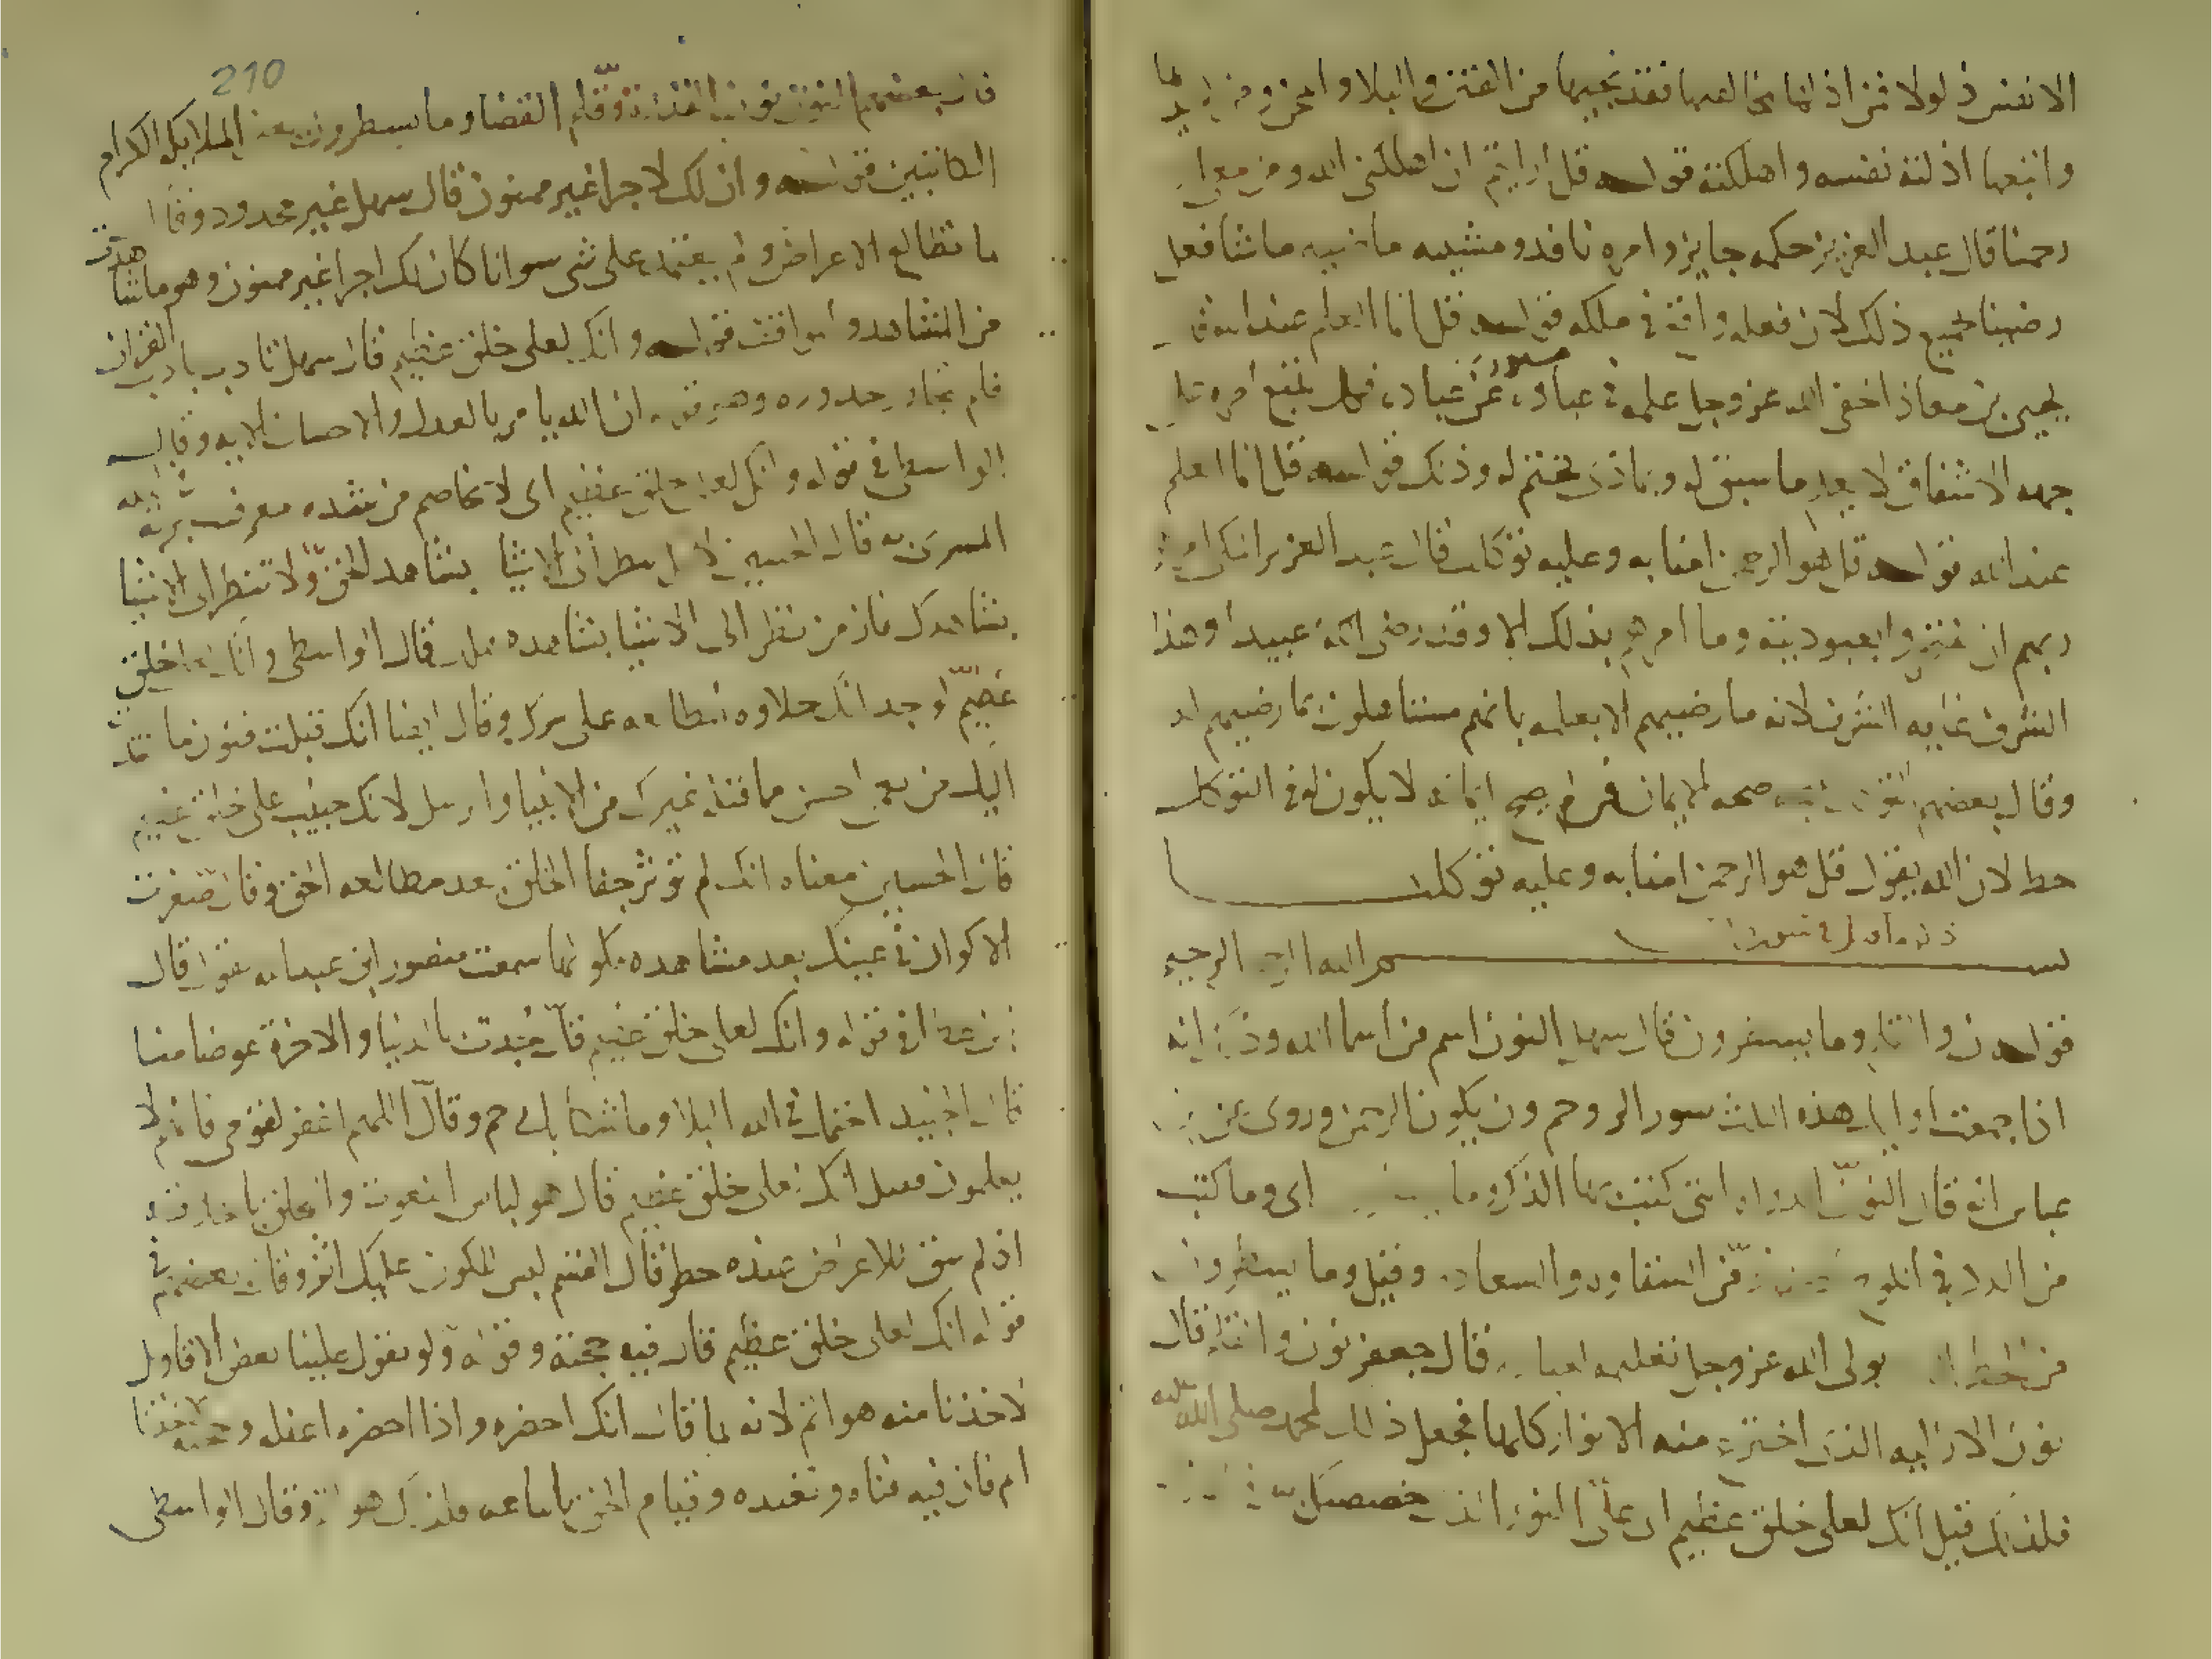 الانفس ذلولا فمن اذلها بمخالفتها فقد نجيها من الفتن والبلا والمحن ومن
واتبعها اذلته نفسه واهلكته قوله قل ارايتم ان اهلكنى الله ومن معى او
رحمنا قال عبد العزيز حكمه جايز وامره نافد ومشيته ماضيه ماشا فعل
رضينا جميع ذلك لان فعله واقع فى ملكه قوله قل انما العلم عند الله قال
يحيى بن معاذ اخفى الله عز وجل علمه فى عباده عن عباده فكل يتبع امره على
جهه الاشفاق لا يعلم ما سبق له وبماذى يختم له وذلك قوله قل انما العلم
عند الله قوله قل هو الرحمن امنا به وعليه توكلنا قال عبد العزيز المكى امر
ربهم ان يقروا بعبوديته وما امرهم بذلك الا وقد رضى لهم عبيدا وهذا
الشرف غايه الشرف لانه ما رضيهم الا بعلمه بانهم مستاهلون لما رضيهم له
وقال بعضهم التوكل صحه الايمان فمن لم يصح ايمانه لا يكون له فى التوكل
حظ لان الله يقول قل هو الرحمن امنا به وعليه توكلنا
ذكر ما قيل فى سورة
بسم الله الرحمن الرحيم
قوله ن والقلم وما يسطرون قال سهل النون اسم من اسما الله وذلك انه
اذا جمعت اوايل هذه الثلث سور الر وحم ون يكون الرحمن وروى عن ابن
عباس انه قال النون الدواه التى كتب بها الذكر وما يسطرون اى وما كتب
من الذكر فى اللوح المحفوظ من الشقاوه والسعاده وقيل وما يسطرون
من الخط الذى يولى الله عز وجل تعليمه لعباده قال جعفر نون والقلم قال
نون الازليه الذى اخترع منه الانوار كلها فجعل ذلك لمحمد صلى الله عليه
فلذلك قيل انك لعلى خلق عظيم اى على النور الذى خصصت به فى
210
قال بعضهم النون نون القدرة والقلم القضا وما يسطرون يعنى الملايكه الكرام
الكاتبين قوله وان لك لاجرا غير ممنون قال سهل غير محدود وقال
ما تطالع الاعراض ولم يعتمد على شى سوانا كان لك اجرا غير ممنون وهو ما شاهدت
من المشاهد والمواقف قوله وانك لعلى خلق عظيم قال سهل تادب بادب القران
فلم تجاوز حدوده وهو قوله ان الله يامر بالعدل والاحسان الايه وقال
الواسطى فى قوله وانك لعلى خلق عظيم اى لا تخاصم من شده معرفته بالله
المسرى به قال الحسين لانك تنظر الى الاشيا بشاهد الحق ولا تنظر الى الاشيا
بشاهدك فان من نظر الى الاشيا بشاهده هلك قال الواسطى وانك لعلى خلق
عظيم لوجدانك حلاوه المطالعه على سرك وقال ايضا انك قبلت فنون ما اسديت
اليك من نعمى احسن مما قبله غيرك من الانبيا والرسل لانك جبلت على خلق عظيم
قال الحسين معناه انك لم توثر جفا الخلق بعد مطالعه الحق وقال صغرت
الاكوان فى عينك بعد مشاهده مكونها سمعت منصور ابن عبد الله يقول قال
ابن عطا فى قوله وانك لعلى خلق عظيم قال جدت بالدنيا والاخرة عوضا منا
قال الجنيد احتمل فى الله البلا وما شكا بل رحم وقال اللهم اغفر لقومى فانهم لا
يعلمون فقيل انك لعلى خلق عظيم قال هو لباس النعوت والتخلق باخلاقه
اذ لم يبق للاعراض عنده خطر قال القسم ليس للكون عليك اثر وقال بعضهم فى
قوله انك لعلى خلق عظيم قال فيه محنه وقوله ولو تقول علينا بعض الاقاويل
لاخذنا منه هو اتم لانه لما قال انك احضره واذا احضره اغفله وحجبه لاخذنا
اتم فان فيه فناه وتفقده وقيام الحق باتمامه فلذلك هو اتم وقال الواسطى